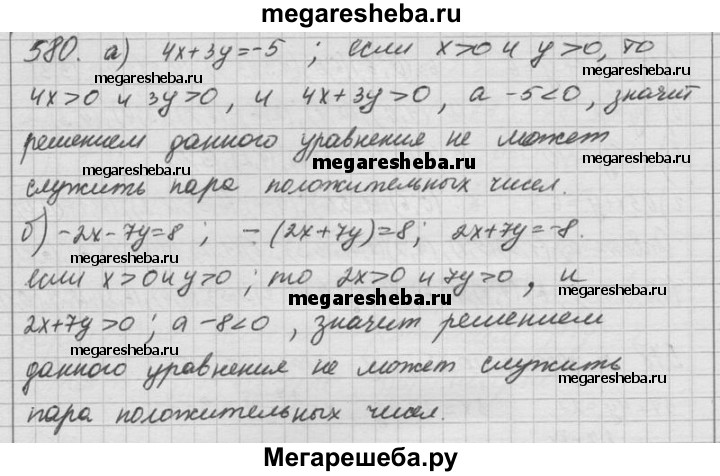 megaresheba.ru
580. а) 4x+3y=-5 ; если x>0 и y>0, то
megaresheba.ru megaresheba.ru
4x>0 и 3y>0, и 4x+3y>0, а -5<0, значит
megaresheba.ru
решением данного уравнения не может
megaresheba.ru megaresheba.ru
служить пара положительных чисел.
б) -2x-7y=8 ; -(2x+7y)=8; 2x+7y=-8.
megaresheba.ru megaresheba.ru
если x>0 и y>0 ; то 2x>0 и 7y>0, и
megaresheba.ru
2x+7y>0 ; а -8<0 , значит решением
megaresheba.ru megaresheba.ru
данного уравнения не может служить
megaresheba.ru
пара положительных чисел.
Мегарешеба.ру